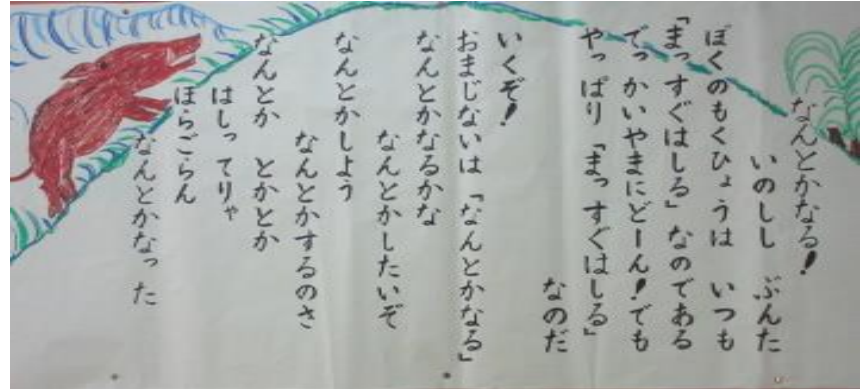 なんとかなる!
いのしし ぶんた
ぼくのもくひょうは いつも
「まっすぐはしる」なのである
でっかいやまにどーん!でも
やっぱり「まっすぐはしる」
なのだ
いくぞ!
おまじないは「なんとかなる」
なんとかなるかな
なんとかしたいぞ
なんとかしよう
なんとかするのさ
なんとか とかとか
はしってりゃ
ほらごらん
なんとかなった